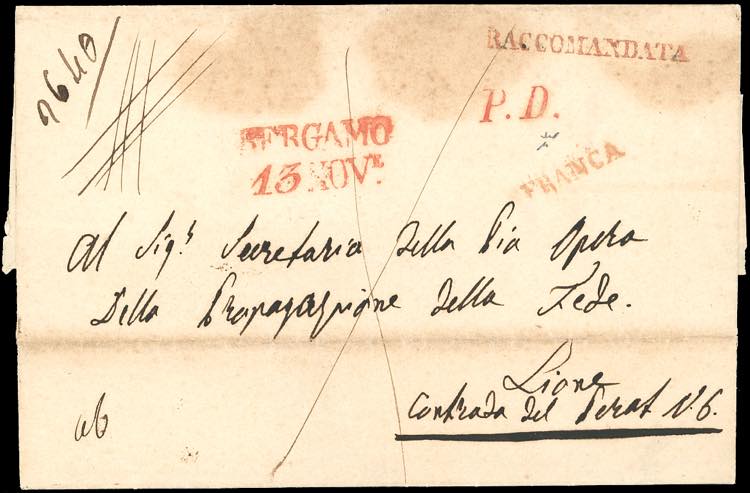 RACCOMANDATA
2640
P. D.
BERGAMO
13 NOVE.
FRANCA
Al Sigr Secretaria della Pia Opera
Della Propagazione della Fede.
Lione
Contrada del Perat N. 6.